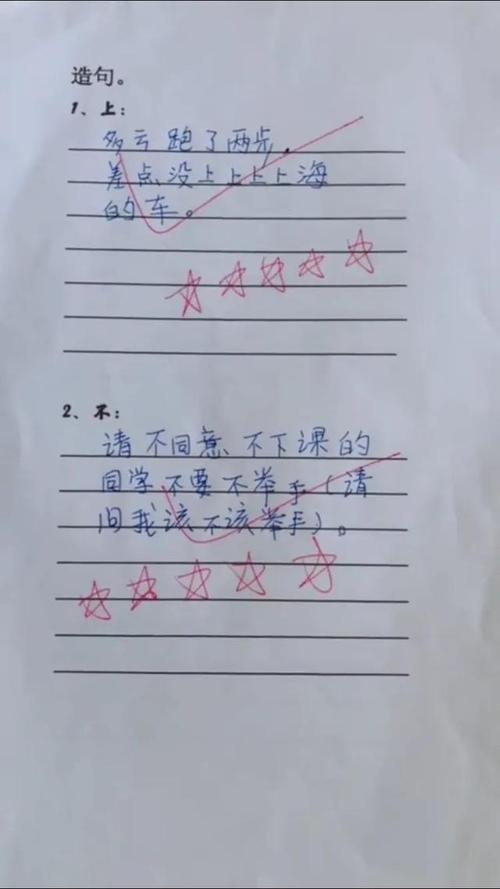 造句。
1、上：
多亏跑了两步，
差点没上上上上海
的车。
2、不：
请不同意不下课的
同学不要不举手（请
问我该不该举手）。